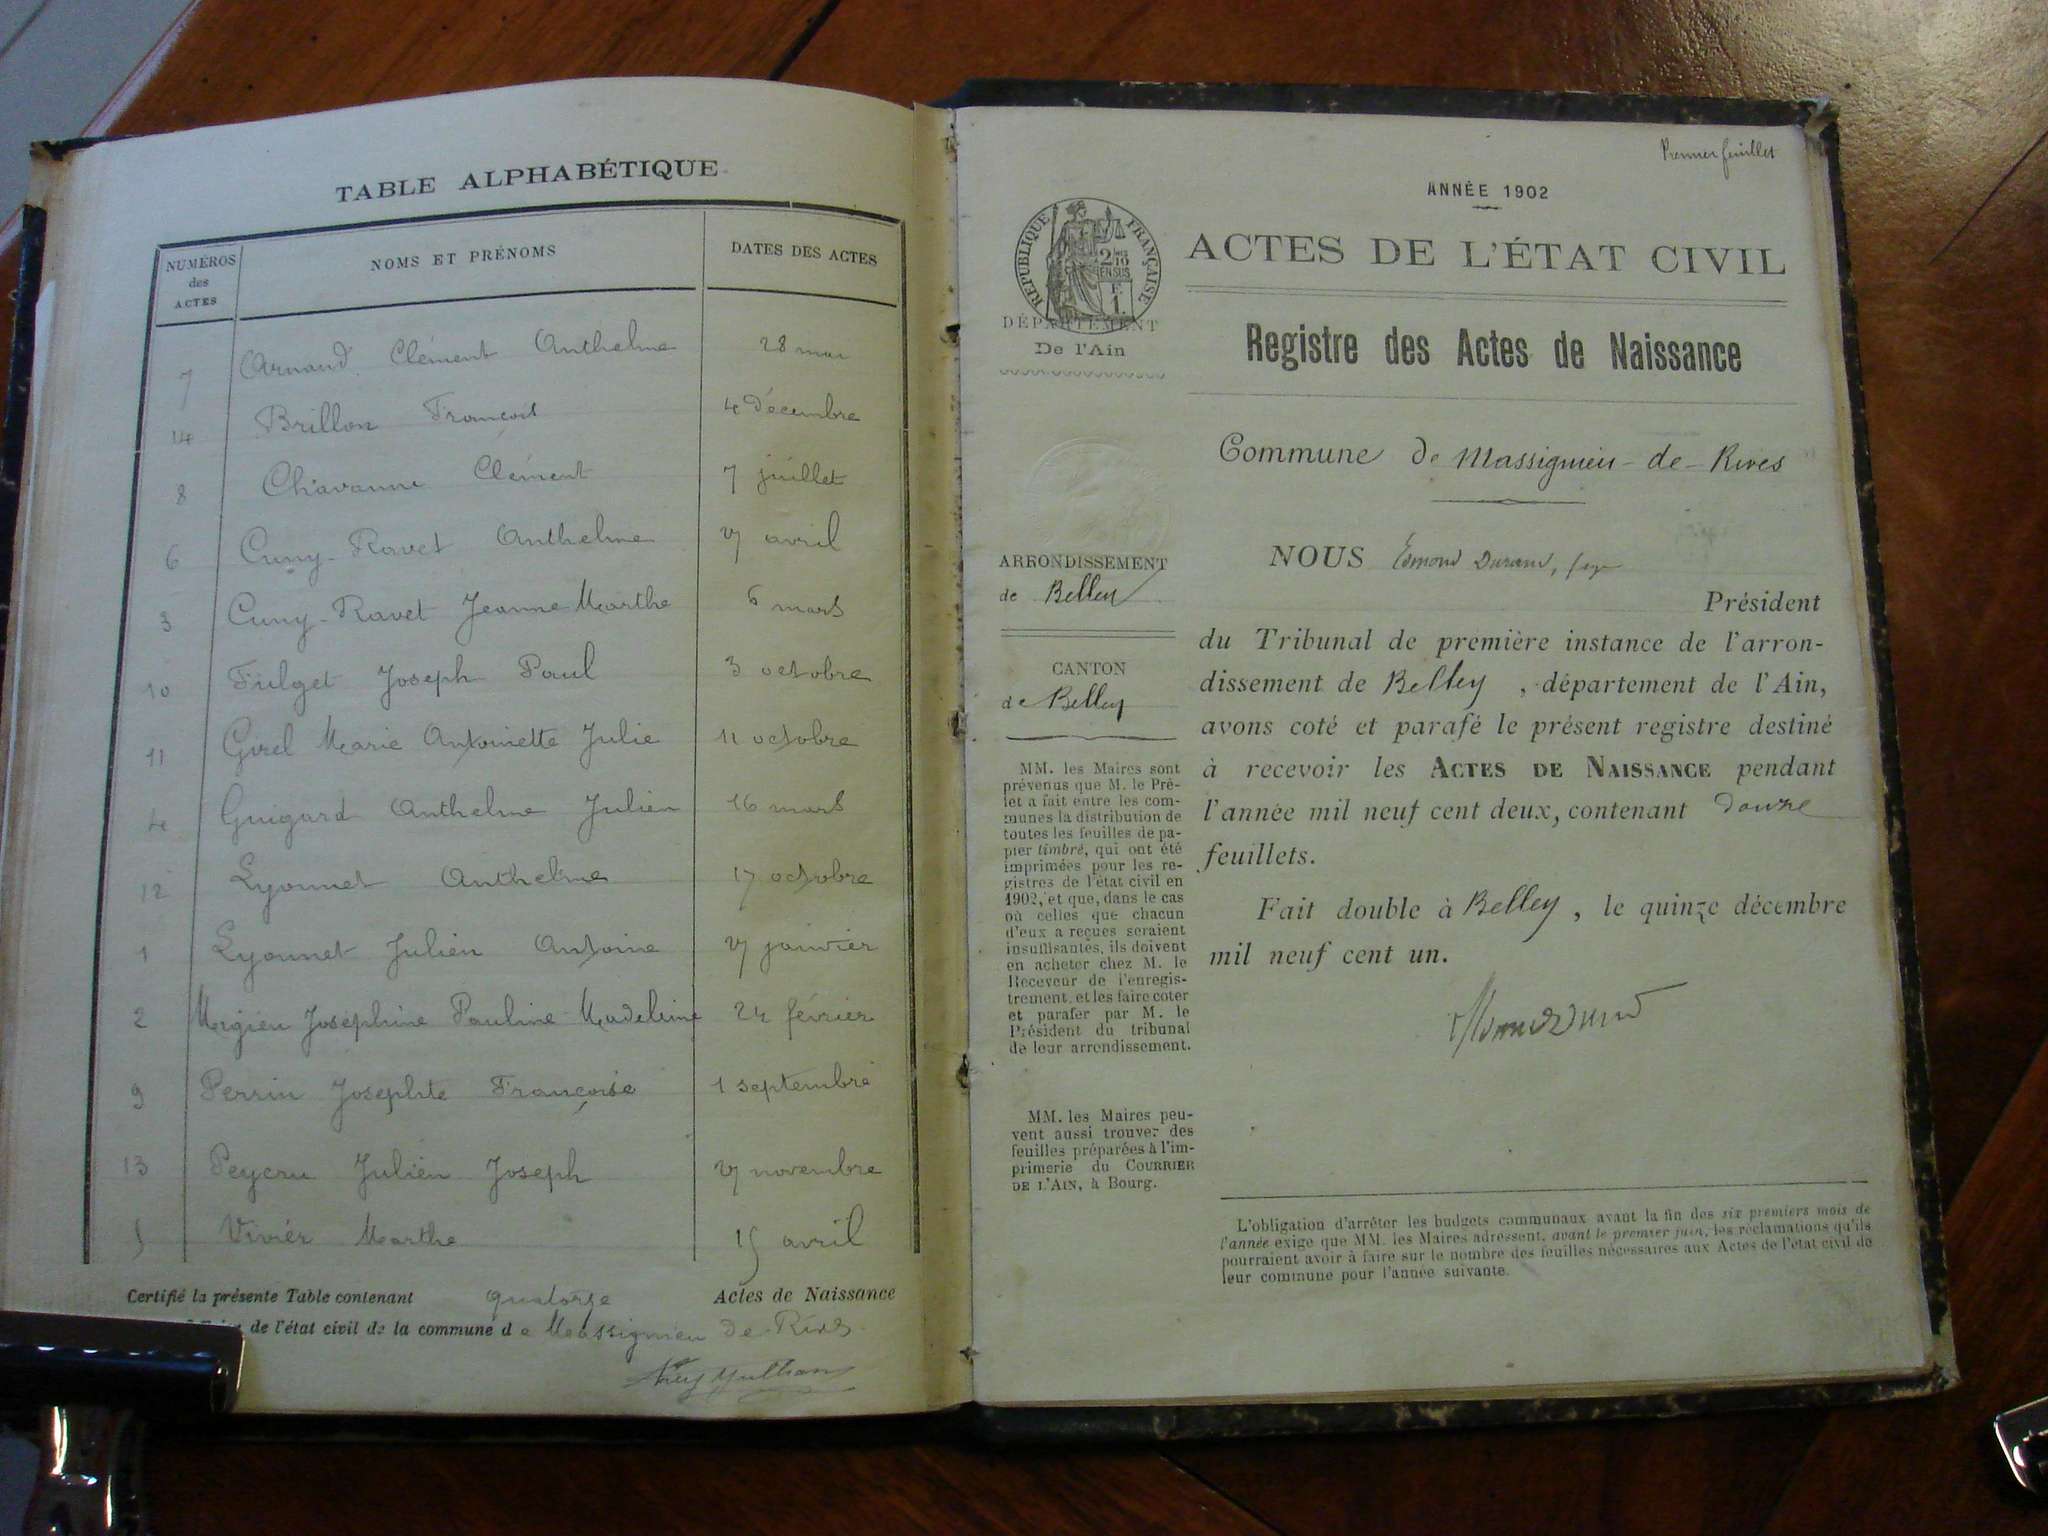 TABLE ALPHABÉTIQUE
NUMÉROS des ACTES NOMS ET PRÉNOMS DATES DES ACTES
7 Arnaud Clément Anthelme 28 mai
14 Brillon François 4 décembre
8 Chavanne Clément 7 juillet
6 Cuny-Ravet Anthelme 27 avril
3 Cuny-Ravet Jeanne Marthe 6 mars
10 Fulget Joseph Paul 3 octobre
11 Girel Marie Antoinette Julie 11 octobre
4 Guigard Anthelme Julien 16 mars
12 Lyonnet Anthelme 17 octobre
1 Lyonnet Julien Antoine 27 janvier
2 Joséphine Pauline Madeleine 24 février
9 Perrin Josephte Françoise 1 septembre
13 Peycru Julien Joseph 27 novembre
5 Vivier Marthe 15 avril
Certifié la présente Table contenant quatorze Actes de Naissance
de l'état civil de la commune de Massignieu de Rives
Premier feuillet
ANNÉE 1902
ACTES DE L'ÉTAT CIVIL
RÉPUBLIQUE FRANÇAISE
2/10 EN SUS
F. 1.
DÉPARTEMENT
De l'Ain
Registre des Actes de Naissance
Commune de Massignieu-de-Rives
ARRONDISSEMENT
de Belley
CANTON
de Belley
MM. les Maires sont
prévenus que M. le Pré-
fet a fait entre les com-
munes la distribution de
toutes les feuilles de pa-
pier timbré, qui ont été
imprimées pour les re-
gistres de l'état civil en
1902, et que, dans le cas
où celles que chacun
d'eux a reçues seraient
insuffisantes, ils doivent
en acheter chez M. le
Receveur de l'enregis-
trement, et les faire coter
et parafer par M. le
Président du tribunal
de leur arrondissement.
MM. les Maires peu-
vent aussi trouver des
feuilles préparées à l'im-
primerie du COURRIER
DE L'AIN, à Bourg.
NOUS Edmond Durand, juge
Président
du Tribunal de première instance de l'arron-
dissement de Belley, département de l'Ain,
avons coté et parafé le présent registre destiné
à recevoir les ACTES DE NAISSANCE pendant
l'année mil neuf cent deux, contenant douze
feuillets.
Fait double à Belley, le quinze décembre
mil neuf cent un.
L'obligation d'arrêter les budgets communaux avant la fin des six premiers mois de
l'année exige que MM. les Maires adressent, avant le premier juin, les réclamations qu'ils
pourraient avoir à faire sur le nombre des feuilles nécessaires aux Actes de l'état civil de
leur commune pour l'année suivante.